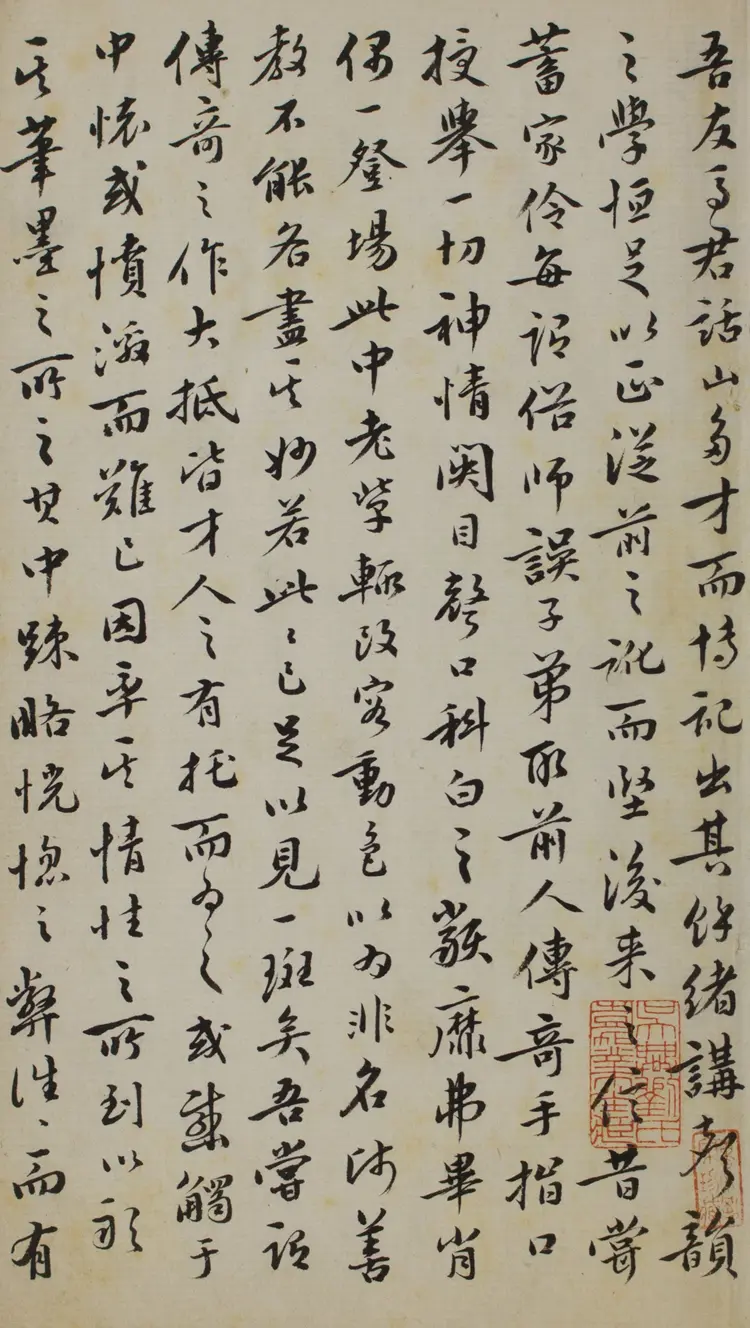 吾友馬君話山多才而博記出其餘緒講考韻
之學恒足以正從前之訛而堅後來之信昔嘗
蓄家伶每詔俗師誤子弟取前人傳奇手指口
授舉一切神情闋目聲口科白之類靡弗畢肖
偶一登場此中老掌輒改容動色以為非名師善
教不能各盡其妙若此此已足以見一斑矣吾嘗詔
傳奇之作大抵皆才人之有托而為之或感觸于
中懷或憤激而難已因率其情性之所到以形
其筆墨之所之其中疎略恍惚之弊往往而有